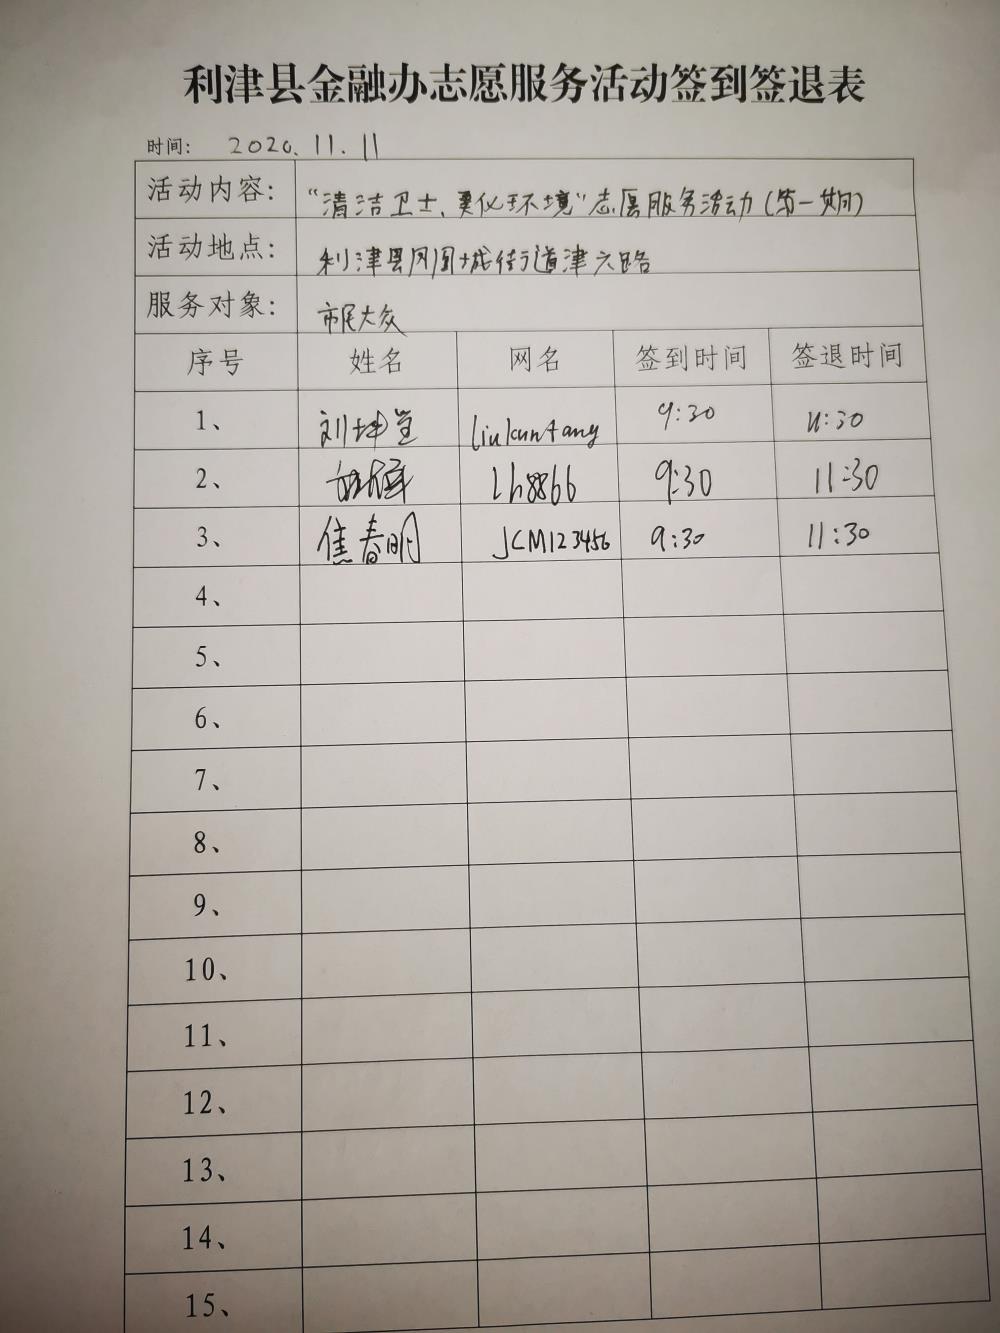 利津县金融办志愿服务活动签到签退表
时间: 2020.11.11
活动内容: “清洁卫士、美化环境”志愿服务活动(第一期)
活动地点: 利津县凤凰城街道津六路
服务对象: 市民大众
序号 姓名 网名 签到时间 签退时间
1、 刘坤堂 liukuntang 9:30 11:30
2、 lh8866 9:30 11:30
3、 焦春明 JCM123456 9:30 11:30
4、
5、
6、
7、
8、
9、
10、
11、
12、
13、
14、
15、